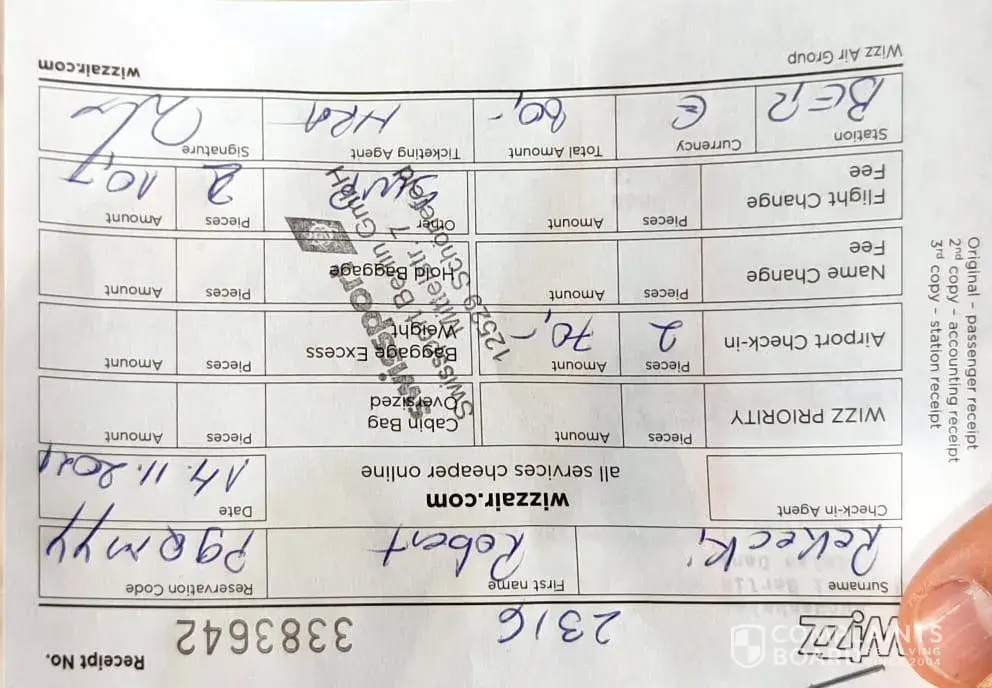 WIZZ 2316 Receipt No. 3383642
Surname First name Reservation Code
Rekecki Robert
Check-in Agent wizzair.com Date
all services cheaper online 14.11.
WIZZ PRIORITY Pieces Amount Cabin Bag Oversized Pieces Amount
Airport Check-in Pieces 2 Amount 70,- Baggage Excess Weight Pieces Amount
Name Change Fee Pieces Amount Hold Baggage Pieces Amount
Flight Change Fee Pieces Amount Other Pieces 2 Amount 10,-
Station Currency Total Amount Ticketing Agent Signature
BER € 80,- HRA
Wizz Air Group wizzair.com
Original - passenger receipt
2nd copy - accounting receipt
3rd copy - station receipt
swissport
Swissport Berlin GmbH
Mittelstr. 7
12529 Schönefeld
COMPLAINTS
BOARD RESOLVING
SINCE 2004